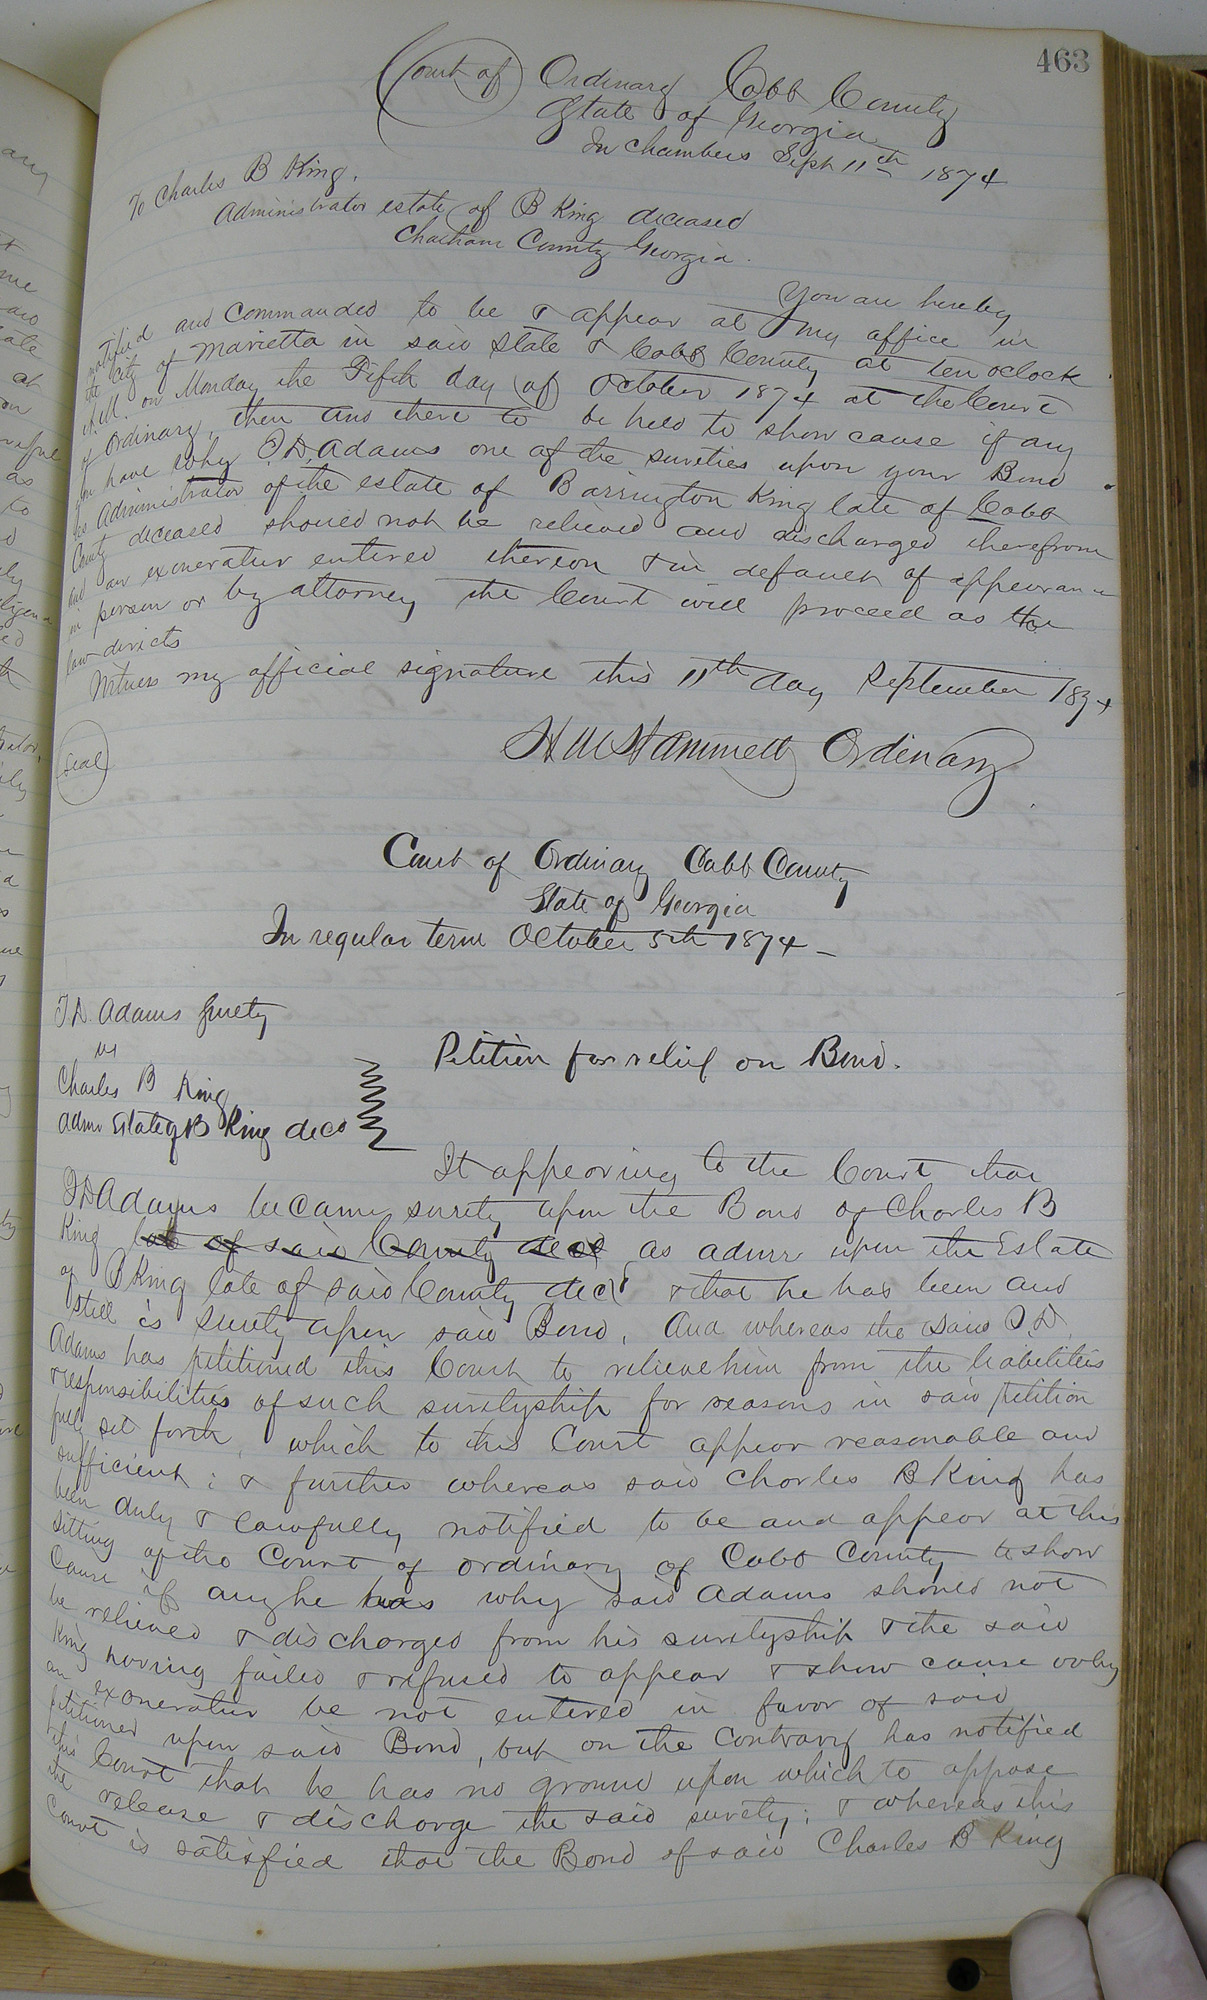 463
Court of Ordinary Cobb County
State of Georgia
In Chambers Sept 11th 1874
To Charles B King.
Administrator estate of B King deceased
Chatham County Georgia.
You are hereby
notified and Commanded to be & appear at my office in
the City of Marietta in said State & Cobb County at ten oclock
A.M. on Monday the Fifth day of October 1874 at the Court
of Ordinary, then and there to be held to show cause if any
you have why T.D. Adams one of the sureties upon your Bond
as Administrator of the estate of Barrington King late of Cobb
County deceased should not be relieved and discharged therefrom
and an exoneratur entered thereon & in default of appearance
in person or by attorney the Court will proceed as the
law directs
Witness my official signature this 11th day September 1874
Seal
H M Hammett Ordinary
Court of Ordinary Cobb County
State of Georgia
In regular term October 5th 1874 -
T.D. Adams Surety
vs
Charles B King
Admr Estate of B King decd
Petition for relief on Bond.
It appearing to the Court that
T.D. Adams became surety upon the Bond of Charles B
King late of said County decd as admr upon the Estate
of B King late of said County decd & that he has been and
still is surety upon said Bond, And whereas the said T.D.
Adams has petitioned this Court to relieve him from the liabilities
& responsibilities of such suretyship for reasons in said petition
fully set forth, which to this Court appear reasonable and
sufficient; & further whereas said Charles B King has
been duly & lawfully notified to be and appear at this
Sitting of the Court of Ordinary of Cobb County to show
Cause if any he has why said Adams should not
be relieved & discharged from his suretyship & the said
King having failed & refused to appear & show cause why
an exoneratur be not entered in favor of said
petitioner upon said Bond, but on the Contrary has notified
this Court that he has no ground upon which to oppose
the release & discharge the said surety; & whereas this
Court is satisfied that the Bond of said Charles B King